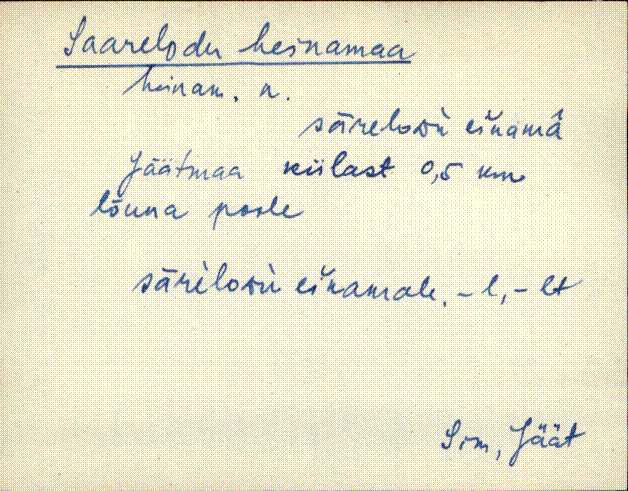 Saarelodu heinamaa
heinam. n.
sāreloᴅù eìnamā̂
Jäätmaa külast 0,5 km
lõuna poole
sārèloᴅù eìnamale, -l, -lt
Sim, Jäät